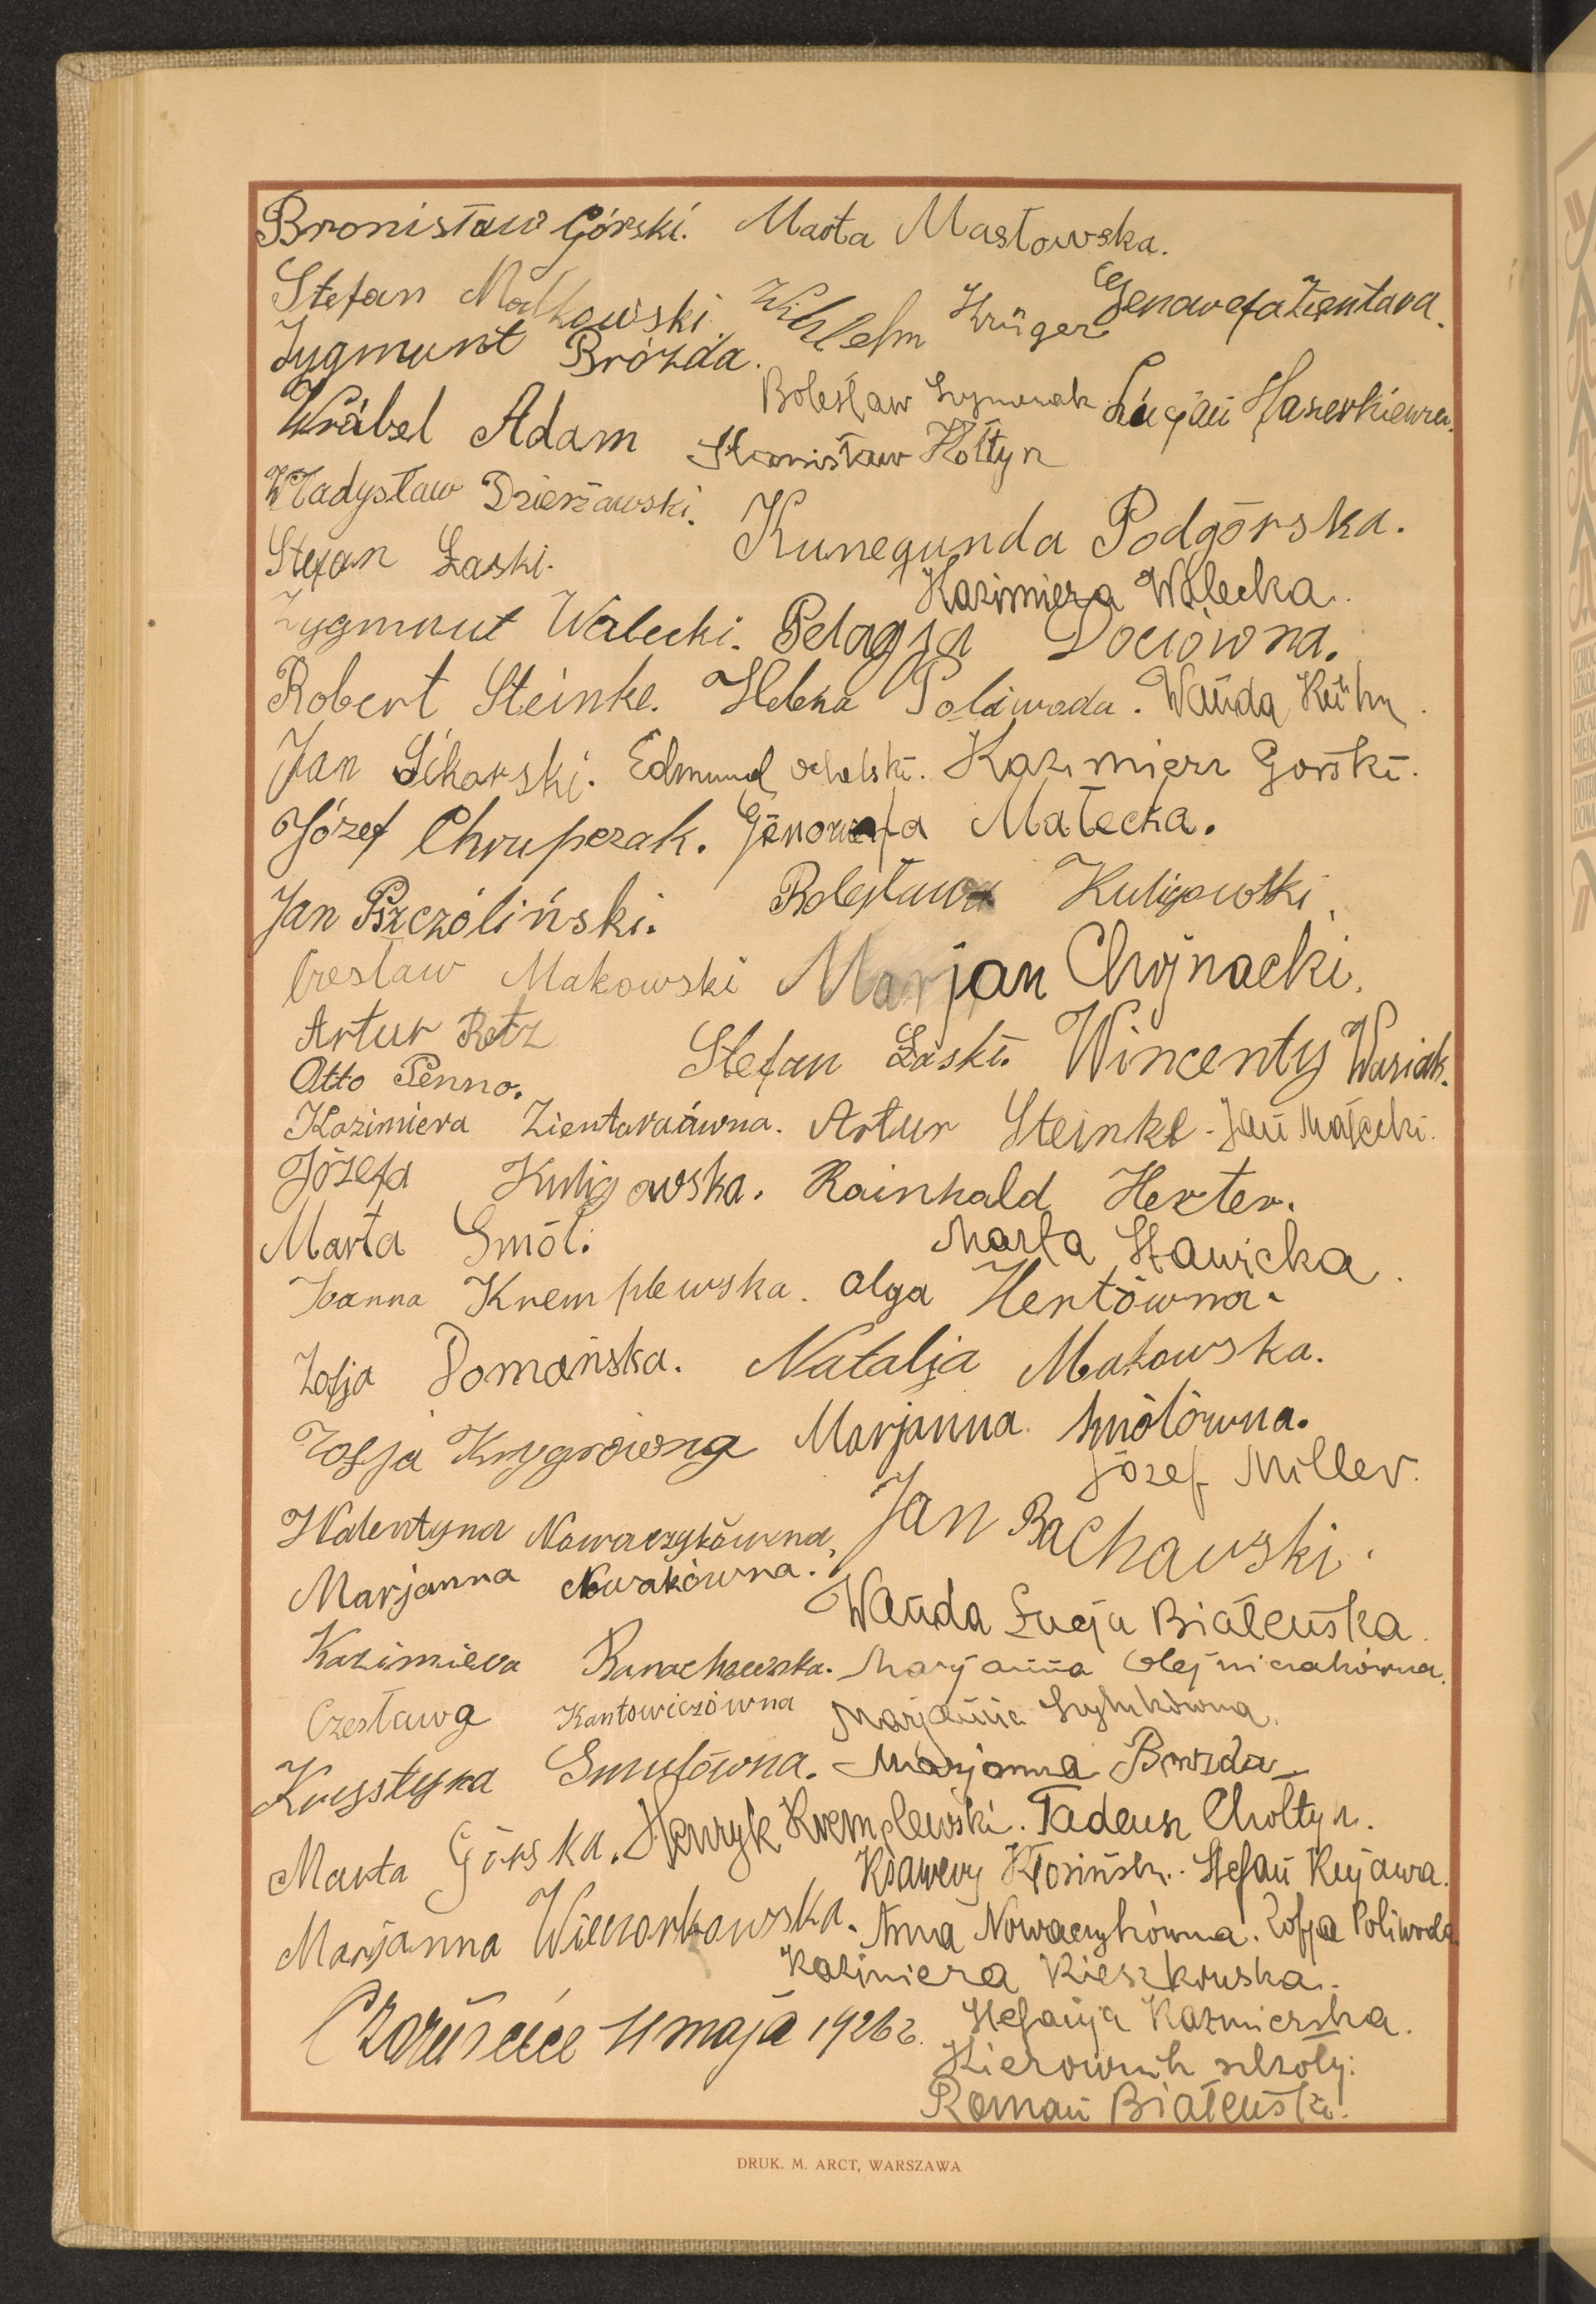 Bronisław Górski. Marta Masłowska.
Stefan Małkowski. Wihlelm Krüger Genowefa Zientara.
Zygmunt Brózda.
Bolesław Szymczak. Lucjan
Wróbel Adam Stanisław Hołtyn
Władysław Dzierżawski. Kunegunda Podgórska.
Stefan Łaski. Kazimiera Walecka.
Zygmunt Walecki. Pelagja Dociówna.
Robert Steinke. Helena Poliwoda. Wanda Kühn.
Jan Sikorski. Edmund Kazimierz Gorski.
Józef Chrupczak. Genowefa Małecka.
Jan Pszczóliński. Bolesław Kuligowski.
Czesław Makowski Marjan Chojnacki.
Artur Retz
Stefan Łaski. Wincenty Wasiak.
Otto Penno.
Kazimiera Zientaraówna. Artur Steinke. Jan Małecki.
Józefa Kuligowska. Rainhald Herter.
Marta Smól. Marta Stawicka.
Joanna Kremplewska. Olga Hertówna.
Zofja Domańska. Natalja Makowska.
Zofja Krygrówna Marjanna Smólówna.
Józef Miller.
Walentyna Nowaczykówna. Jan Bachawski.
Marjanna Nowakówna.
Wanda Łucja Białeńska.
Kazimiera Banachowska. Marjanna Olejniczakówna.
Czesława Kantowiczówna Marjanna
Krystyna Smulówna. Marjanna Brozda.
Marta Górska. Henryk Kremplewski. Tadeusz Chołtyn.
Ksawery Kłosiński. Stefan Kujawa.
Marjanna Wieczorkowska. Anna Nowaczykówna. Zofja Poliwoda
Kazimiera Kieszkowska.
Stefanja Kazmierska.
11 maja 1926 r.
Kierownik szkoły:
Roman Białeński.
DRUK. M. ARCT, WARSZAWA